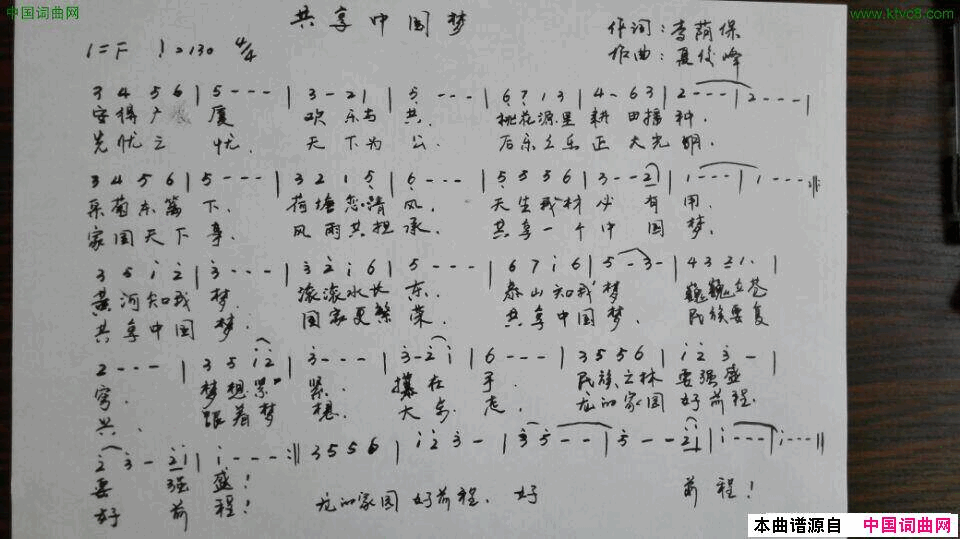 中国词曲网
www.ktvc8.com
共享中国梦
作词：李荫保
作曲：夏俊峰
1=F ♩=130 4/4
3 4 5 6 | 5 - - - | 3 - 2 1 | 5 - - - | 6 7 1 3 | 4 - 6 3 | 2 - - - | 2 - - - |
安得广 厦 欢乐与共. 桃花源里耕田播种.
先忧之忧. 天下为公. 后乐之乐正大光明.
3 4 5 6 | 5 - - - | 3 2 1 5 | 6 - - - | 5 5 5 6 | 3 - - 2 | 1 - - - | 1 - - - :||
采菊东篱下. 荷塘您清风. 天生我材必有用.
家国天下事. 风雨共担承. 共享一个中国梦.
3 5 i 2 | 3 - - - | 3 2 i 6 | 5 - - - | 6 7 i 6 | 5 - 3 - | 4 3 2 1. |
黄河知我梦 滚滚水长东. 泰山知我梦 巍巍立苍
共享中国梦. 国家更繁荣. 共享中国梦. 民族要复
2 - - - | 3 5 i 2 | 3 - - - | 3 - 2 i | 6 - - - | 3 5 5 6 | i 2 3 - |
穹. 梦想紧紧. 攥在手. 民族之林要强盛
兴. 跟着梦想. 大步走. 龙的家园好前程.
2 3 - 2 i | i - - - :|| 3 5 5 6 | i 2 3 - | 3 5 - - | 5 - - 2 i | i - - - | i - - - ||
要强盛!
好前程! 龙的家园好前程. 好 前程!
本曲谱源自 中国词曲网